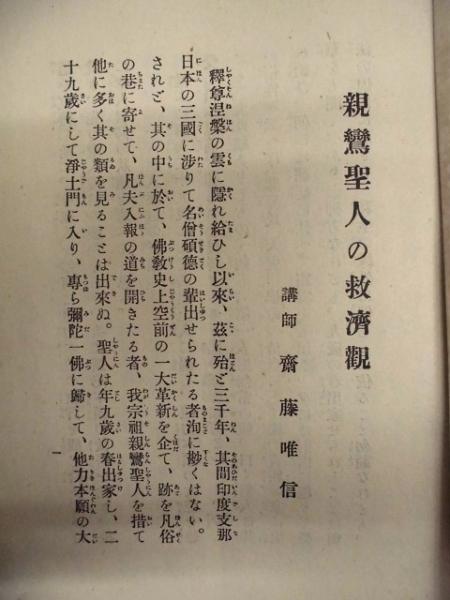 親鸞聖人の救濟觀
講師 齋藤唯信
釋尊涅槃の雲に隱れ給ひし以來、茲に殆ど三千年、其間印度支那
日本の三國に渉りて名僧碩德の輩出せられたる者洵に尠くはない。
されど、其の中に於て、佛敎史上空前の一大革新を企て、跡を凡俗
の巷に寄せて、凡夫入報の道を開きたる者、我宗祖親鸞聖人を措て
他に多く其の類を見ることは出來ぬ。聖人は年九歲の春出家し、二
十九歲にして淨土門に入り、專ら彌陀一佛に歸して、他力本願の大
一